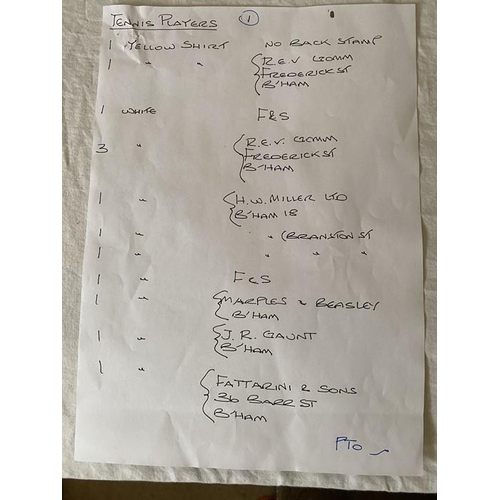 TENNIS PLAYERS 1
1 YELLOW SHIRT NO BACK STAMP
1 " " R.E.V GOMM
FREDERICK ST
B'HAM
1 WHITE F&S
3 " R.E.V. GOMM
FREDERICK ST
B'HAM
1 " H.W. MILLER LTD
B'HAM 18
1 " " (BRANSTON ST
1 " " " "
1 " F&S
1 " MARPLES & BEASLEY
B'HAM
1 " J.R. GAUNT
B'HAM
1 " FATTARINI & SONS
36 BARR ST
B'HAM
PTO